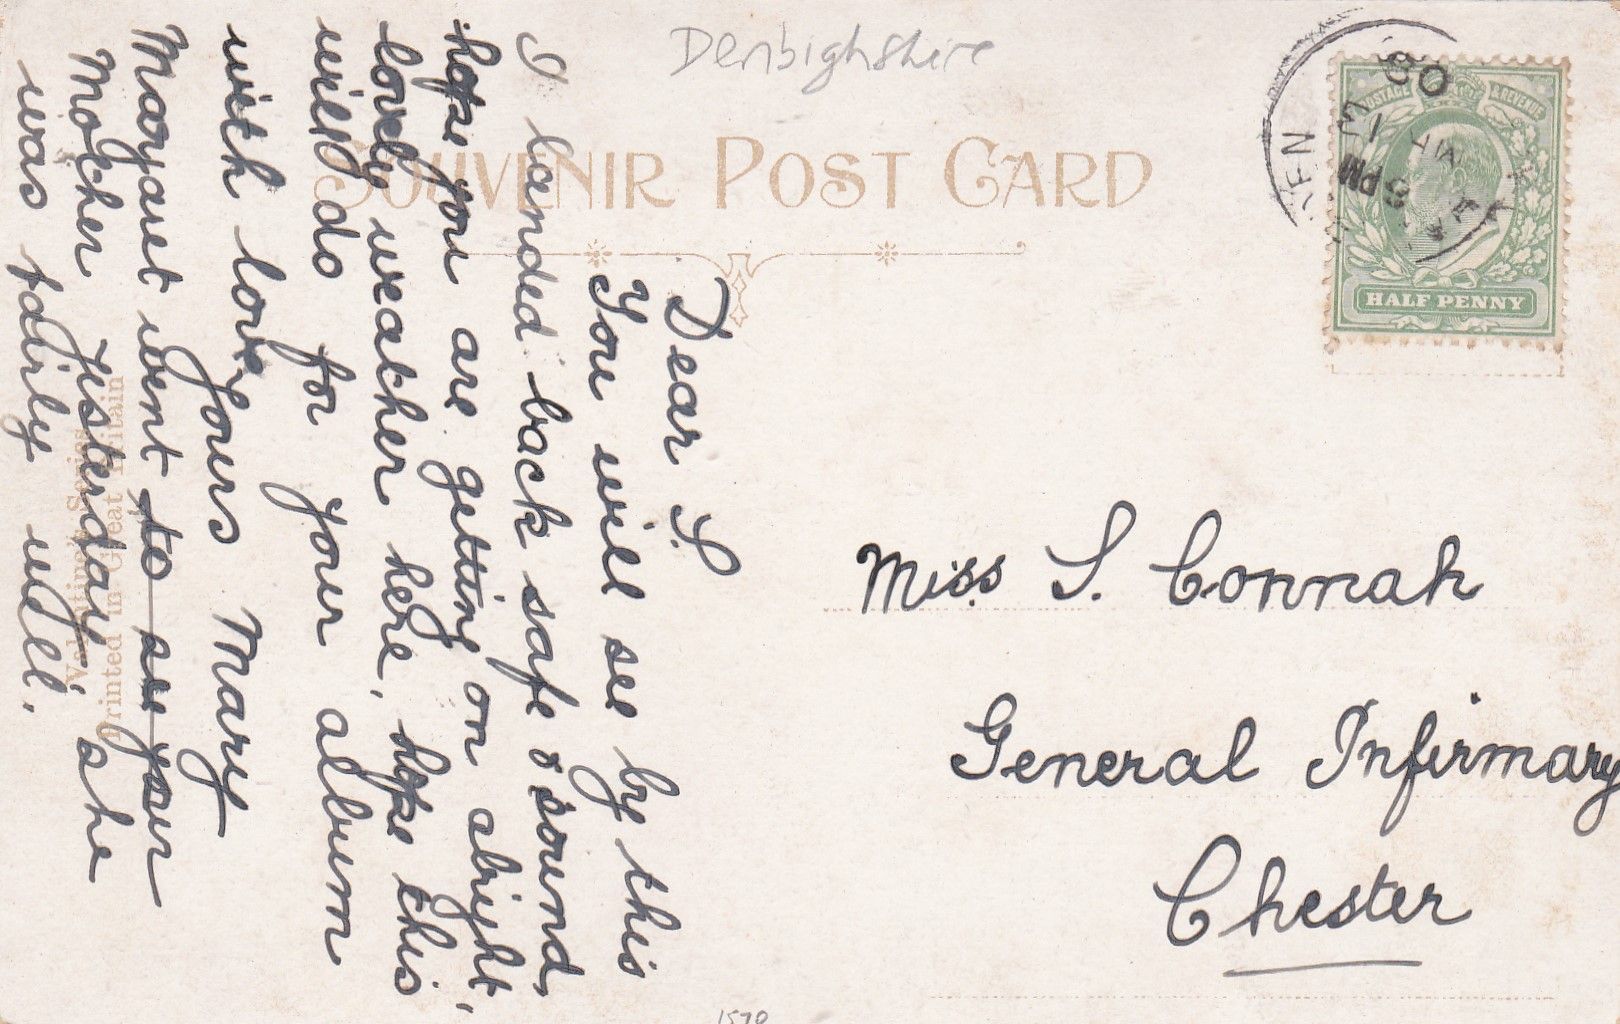 Denbighshire
SOUVENIR POST CARD
HALF PENNY
POSTAGE & REVENUE
5 PM
08
Dear S.
You will see by this
I landed back safe & sound,
hope you are getting on alright,
lovely weather here, hope this
will do for your album
with love Yours Mary
Margaret went to see your
Mother Yesterday she
was fairly well.
Valentine's Series
Printed in Great Britain
Miss S. Connah
General Infirmary
Chester
1570